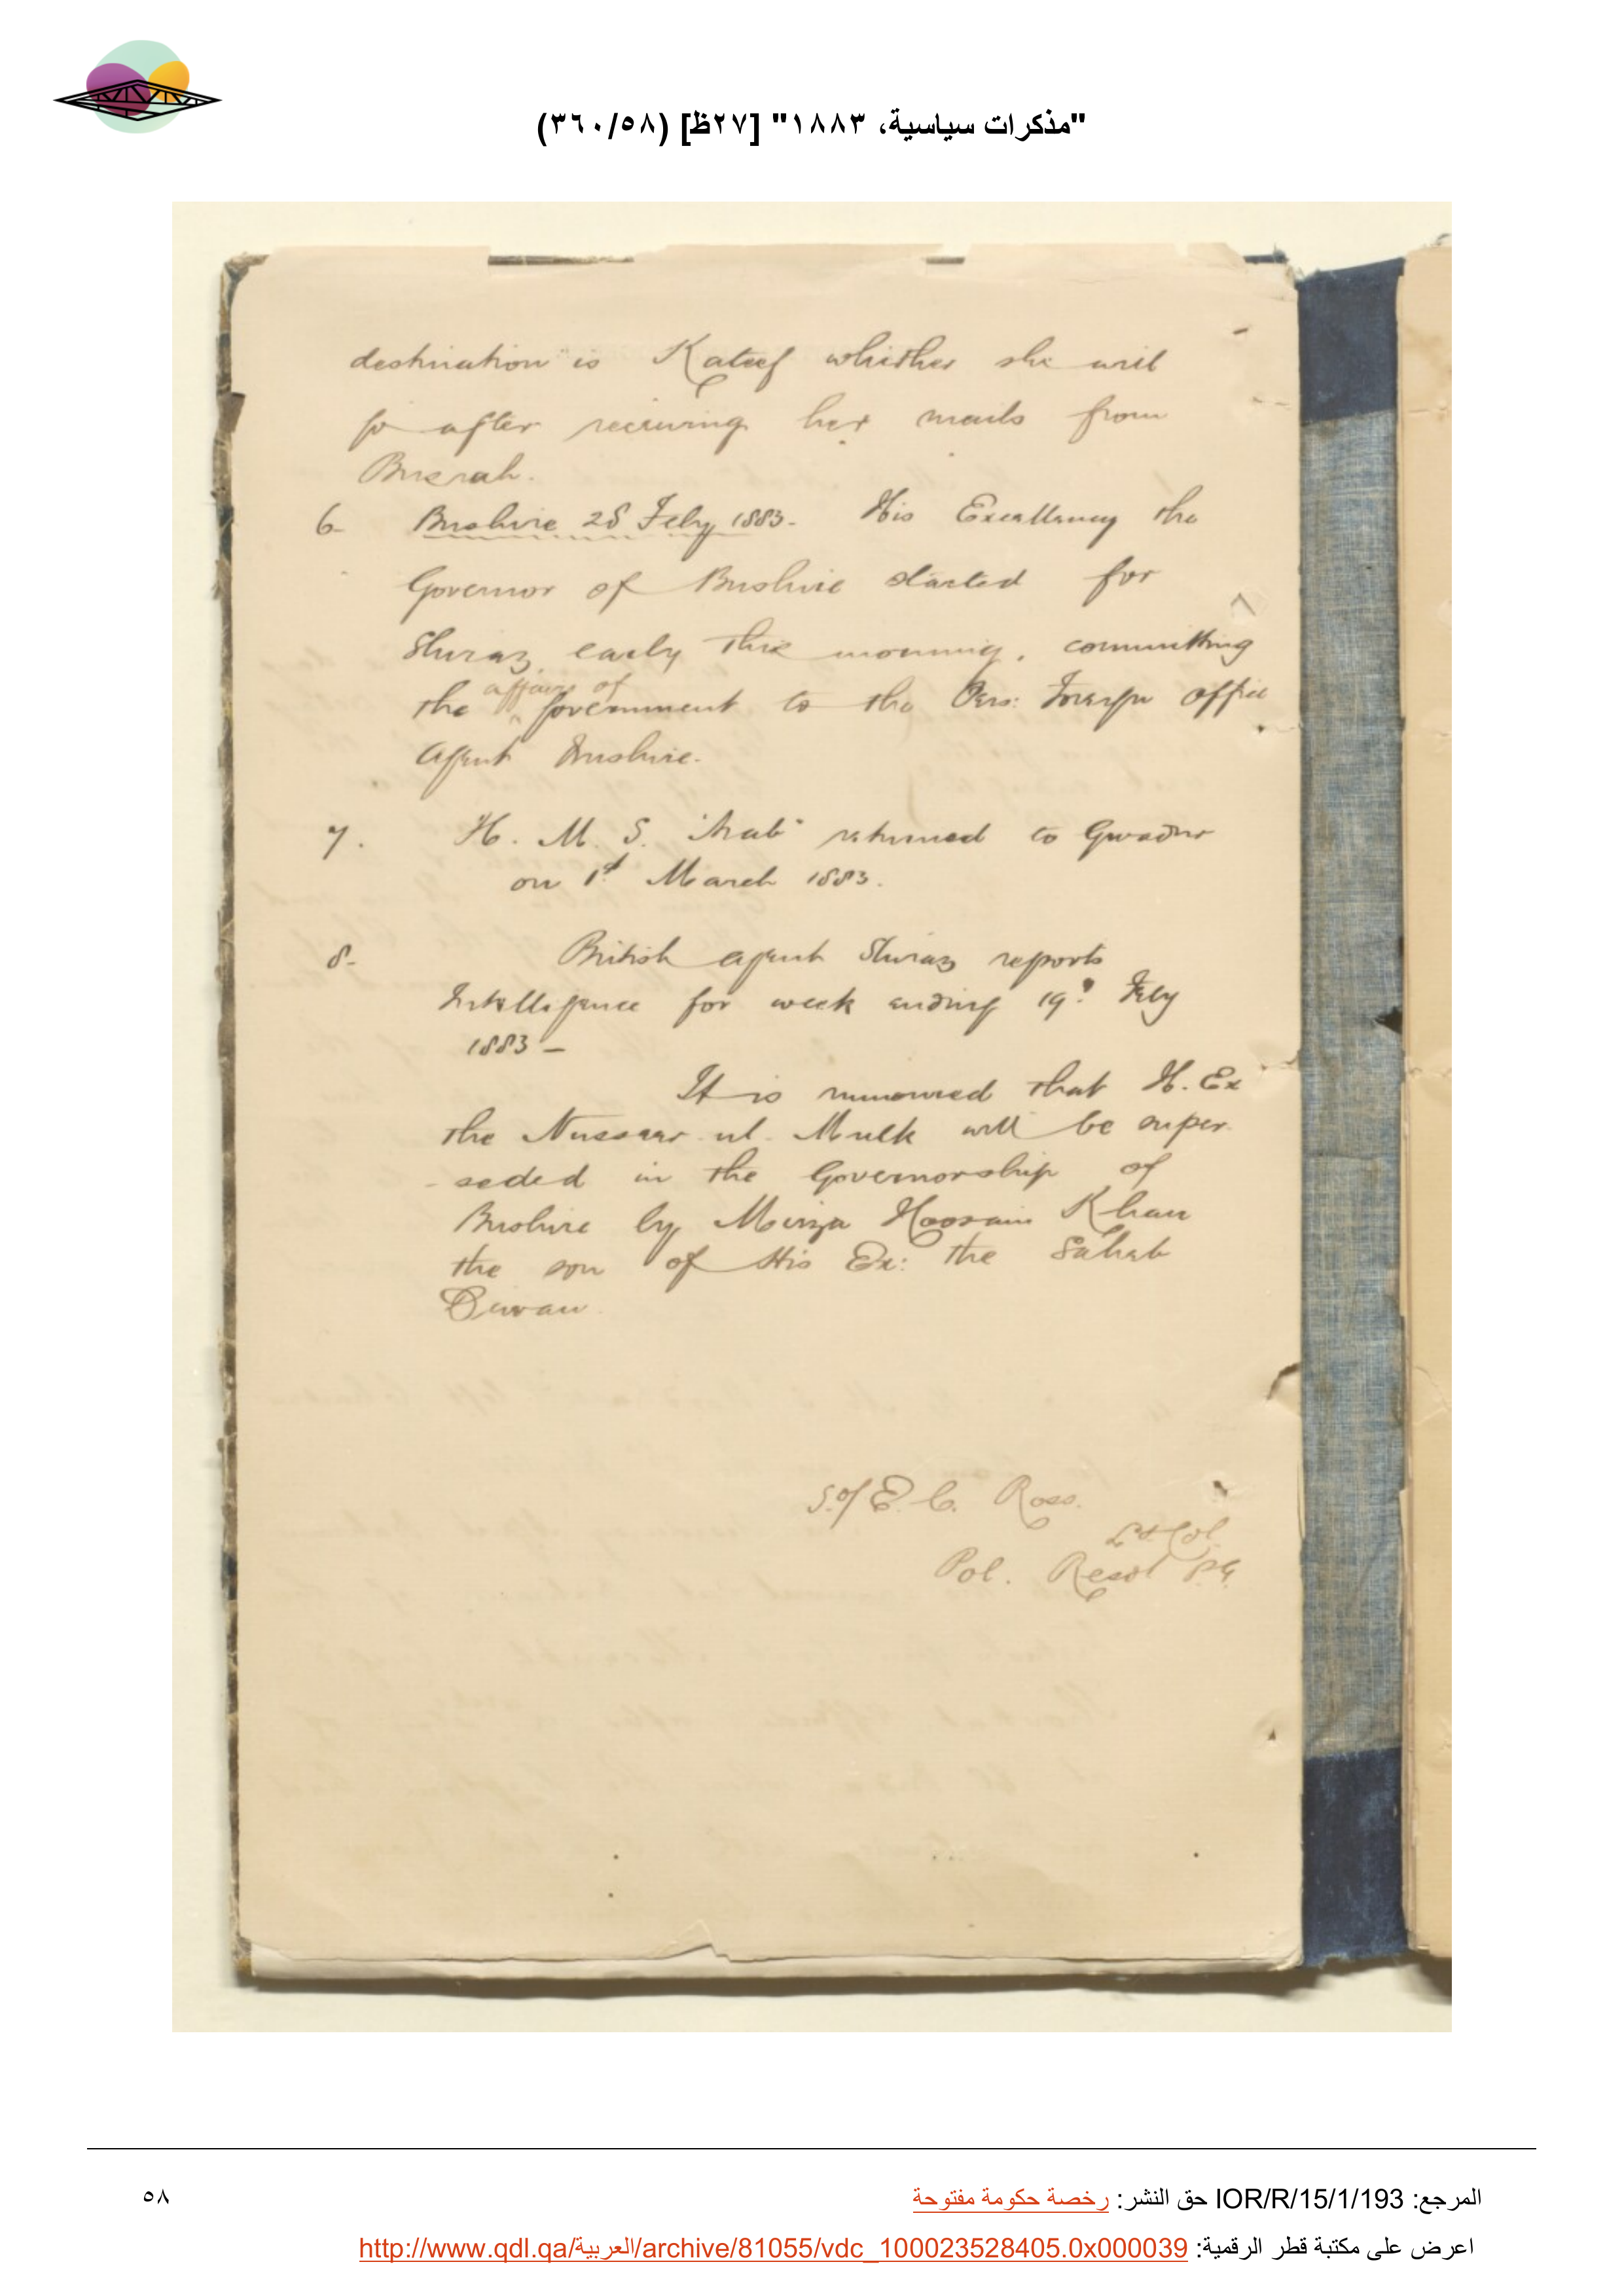 "مذكرات سياسية، ١٨٨٣" [٢٧ظ] (٣٦٠/٥٨)
destination is Kateef whither she will
go after receiving her mails from
Busrah.
6- Bushire 28 Feby 1883- His Excellency the
Governor of Bushire started for
Shiraz early this morning, committing
affairs of
the Government to the Pers: Foreign office
Agent Bushire.
7. H. M. S. "Arab" returned to Gwadur
on 1st March 1883.
8- British agent Shiraz reports
Intelligence for week ending 19th Feby
1883 -
It is rumoured that H. Ex
the Nusseer ul Mulk will be super-
-seded in the Governorship of
Bushire by Mirza Hoosain Khan
the son of His Ex: the Sahab
Diwan.
E. C. Ross.
Lt Col.
Pol. Resdt P.G.
المرجع: IOR/R/15/1/193 حق النشر: رخصة حكومة مفتوحة
٥٨
اعرض على مكتبة قطر الرقمية: http://www.qdl.qa/العربية/archive/81055/vdc_100023528405.0x000039